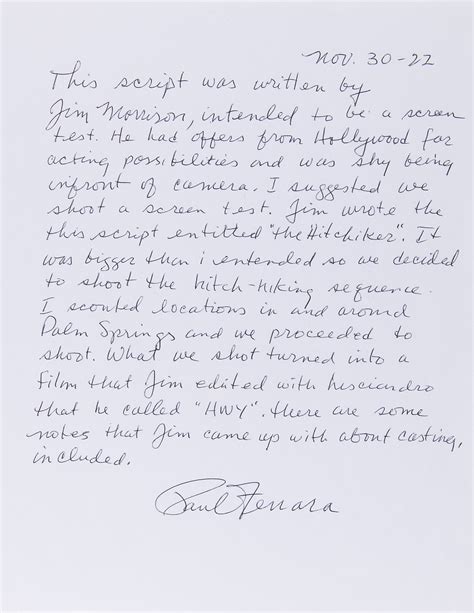 Nov. 30-22
This script was written by
Jim Morrison, intended to be a screen
test. He had offers from Hollywood for
acting possibilities and was shy being
infront of camera. I suggested we
shoot a screen test. Jim wrote the
this script entitled "the Hitchiker". It
was bigger than i entended so we decided
to shoot the hitch-hiking sequence.
I scouted locations in and around
Palm Springs and we proceeded to
shoot. What we shot turned into a
film that Jim edited with Lisciandro
that he called "HWY". there are some
notes that Jim came up with about casting,
included.
Paul Ferrara